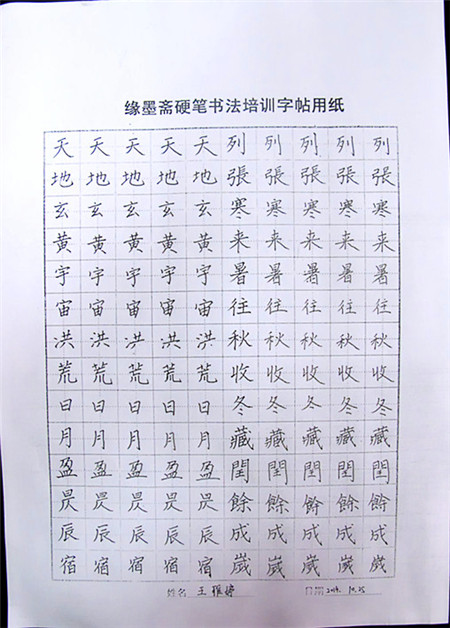 缘墨斋硬笔书法培训字帖用纸
天天天天天列列列列列
地地地地地張張張張張
玄玄玄玄玄寒寒寒寒寒
黄黄黄黄黄来来来来来
宇宇宇宇宇暑暑暑暑暑
宙宙宙宙宙往往往往往
洪洪洪洪洪秋秋秋秋秋
荒荒荒荒荒收收收收收
日日日日日冬冬冬冬冬
月月月月月藏藏藏藏藏
盈盈盈盈盈閏閏閏閏閏
昃昃昃昃昃餘餘餘餘餘
辰辰辰辰辰成成成成成
宿宿宿宿宿歲歲歲歲歲
姓名 王雅婷 日期